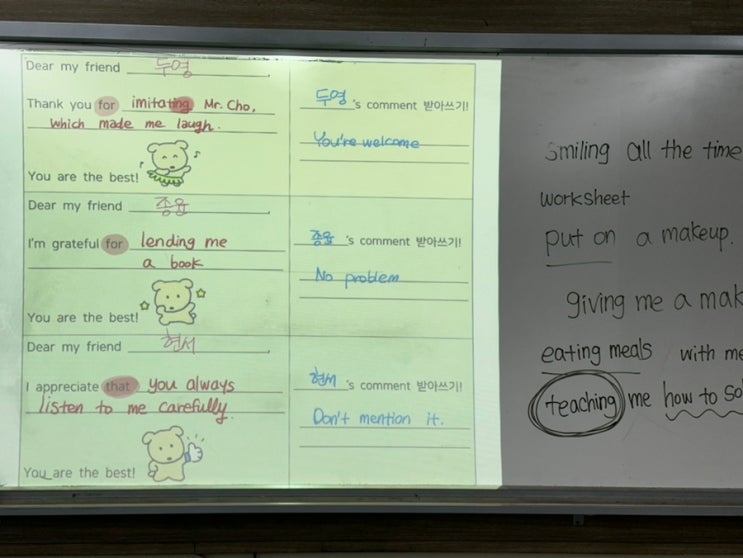 Dear my friend 두영 ,
Thank you for imitating Mr. Cho,
which made me laugh.
You are the best!
두영 's comment 받아쓰기!
You're welcome
Dear my friend 종윤 ,
I'm grateful for lending me
a book
You are the best!
종윤 's comment 받아쓰기!
No problem
Dear my friend 현서 ,
I appreciate that you always
listen to me carefully.
You are the best!
현서 's comment 받아쓰기!
Don't mention it.
smiling all the time
worksheet
put on a makeup.
giving me a mak
eating meals with me
teaching me how to so